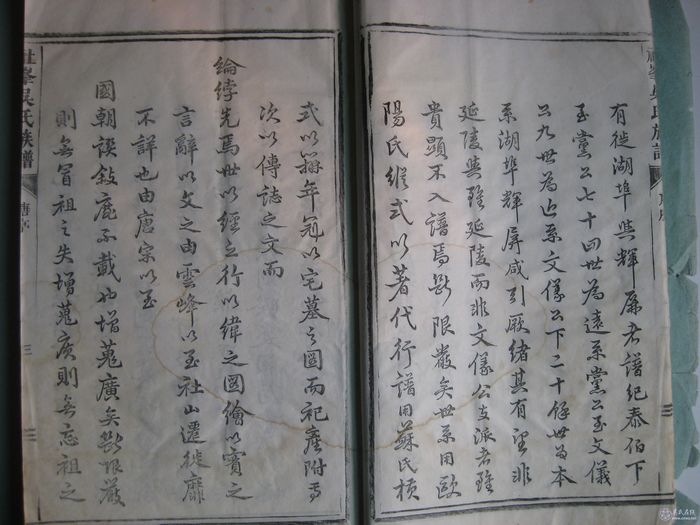 有徙湖埠與輝屏者譜紀泰伯下
至黨公七十四世為遠系黨公至文儀
公九世為近系文儀公下二十餘世為本
系湖埠輝屏咸引厥緒其有望非
延陵與雖延陵而非文儀公支派者雖
貴顯不入譜焉斷限嚴矣世系用歐
陽氏縱式以著代行譜用蘇氏橫
式以編年冠以宅墓之圖而祀產附焉
次以傳誌之文而
綸綍先焉世以經之行以緯之圖繪以實之
言辭以文之由雲峰以至社山遷徙靡
不詳也由唐宗以至
國朝誤敍庶不載也增蒐廣矣斷限嚴
則無冒祖之失增蒐廣則無忘祖之
社峯吳氏族譜
三